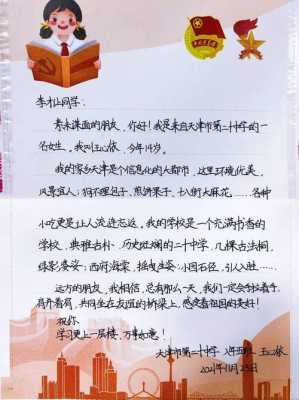 同学：
素未谋面的朋友，你好！我是来自天津市第二十中学的一
名女生，我叫王心依，今年14岁。
我的家乡天津是个信息化的大都市，这里环境优美，
风景宜人；狗不理包子、煎饼果子、十八街大麻花……各种
小吃更是让人流连忘返。我的学校是一个充满书香的
学校，典雅古朴、历史斑斓的二十中学，几棵古法桐，
绿影婆娑；西府海棠，摇曳生姿；小园石径，引人入胜……
远方的朋友，我相信，总有那么一天，我们一定会手拉着手，
肩并着肩，共同坐在友谊的桥梁上，感受着祖国的美好！
祝你
学习更上一层楼，万事如意！
天津市第二十中学 八年 班 王心依
2021年11月23日